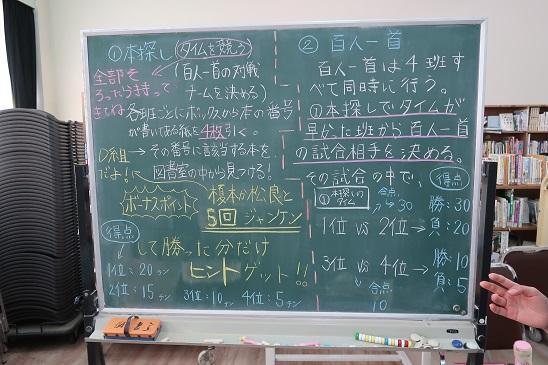 ①本探し（タイムを競う）
全部を
そろったら持って
きてね
（百人一首の対戦
チームを決める）
各班ごとにボックスから本の番号
が書いてある紙を4枚引く。
→その番号に該当する本を
図書室の中から見つける！
D組
だよ！
ボーナスポイント
榎本か松良と
5回ジャンケン
して勝った分だけ
ヒントゲット!!
得点
1位：20テン
2位：15テン 3位：10テン 4位：5テン
② 百人一首
百人一首は4班す
べて同時に行う。
①本探しでタイムが
早かった班から百人一首
の試合相手を決める。
その試合の中で、
①本探しの
タイム
合点
30
得点
1位 vs 2位→ 勝：30
負：20
3位 vs 4位→ 勝：10
負：5
合点
10